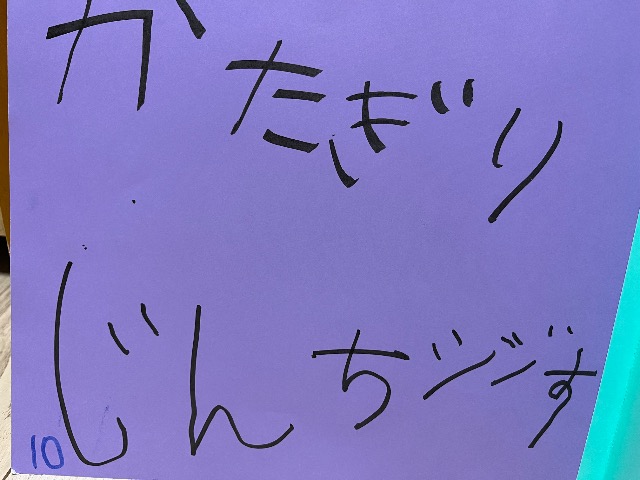 かたぎり
じんちジジず
10